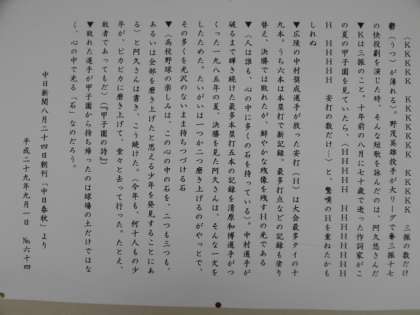 〈KKKKK　KKKKK　KKKKK　KK　三振の数だけ
鬱（うつ）が薄れる〉。野茂英雄投手が大リーグで奪三振十七
の快投劇を演じた時、そんな短歌を詠んだのは、阿久悠さんだ
▼Kは三振のこと。十年前の八月に七十歳で逝った作詞家がこ
の夏の甲子園を見ていたら、〈HHHHH　HHHHH
HHHHH　HHHH　安打の数だけ…〉と、驚嘆のHを重ねたかも
しれぬ
▼広陵の中村奨成選手が放った安打（H）は大会最多タイの十
九本。うち六本は本塁打で新記録。最多打点などの記録も塗り
替え、決勝では敗れたが、鮮やかな残像を残すHの光である
▼〈人は誰も、心の中に多くの石を持っている〉。中村選手が
破るまで輝き続けた最多本塁打五本の記録を清原和博選手がつ
くった一九八五年の夏、決勝を見た阿久さんは、そんな一文を
したためた。たいがいは一つか二つ磨き上げるのがやっとで、
その多くを光沢のないまま持ちつづける石
▼〈高校野球の楽しみは、この心の中の石を、二つも三つも、
あるいは全部を磨き上げたと思える少年を発見することにあ
る〉と阿久さんは書き、こう続けた。〈今年も、何十人もの少
年が、ピカピカに磨き上げて、堂々と去って行った。たとえ、
敗者であってもだ〉（『甲子園の詩』）
▼敗れた選手が甲子園から持ち帰ったのは球場の土だけではな
く、心の中で光る「石」なのだろう。
中日新聞八月二十四日朝刊「中日春秋」より
平成二十九年九月一日　№六十四